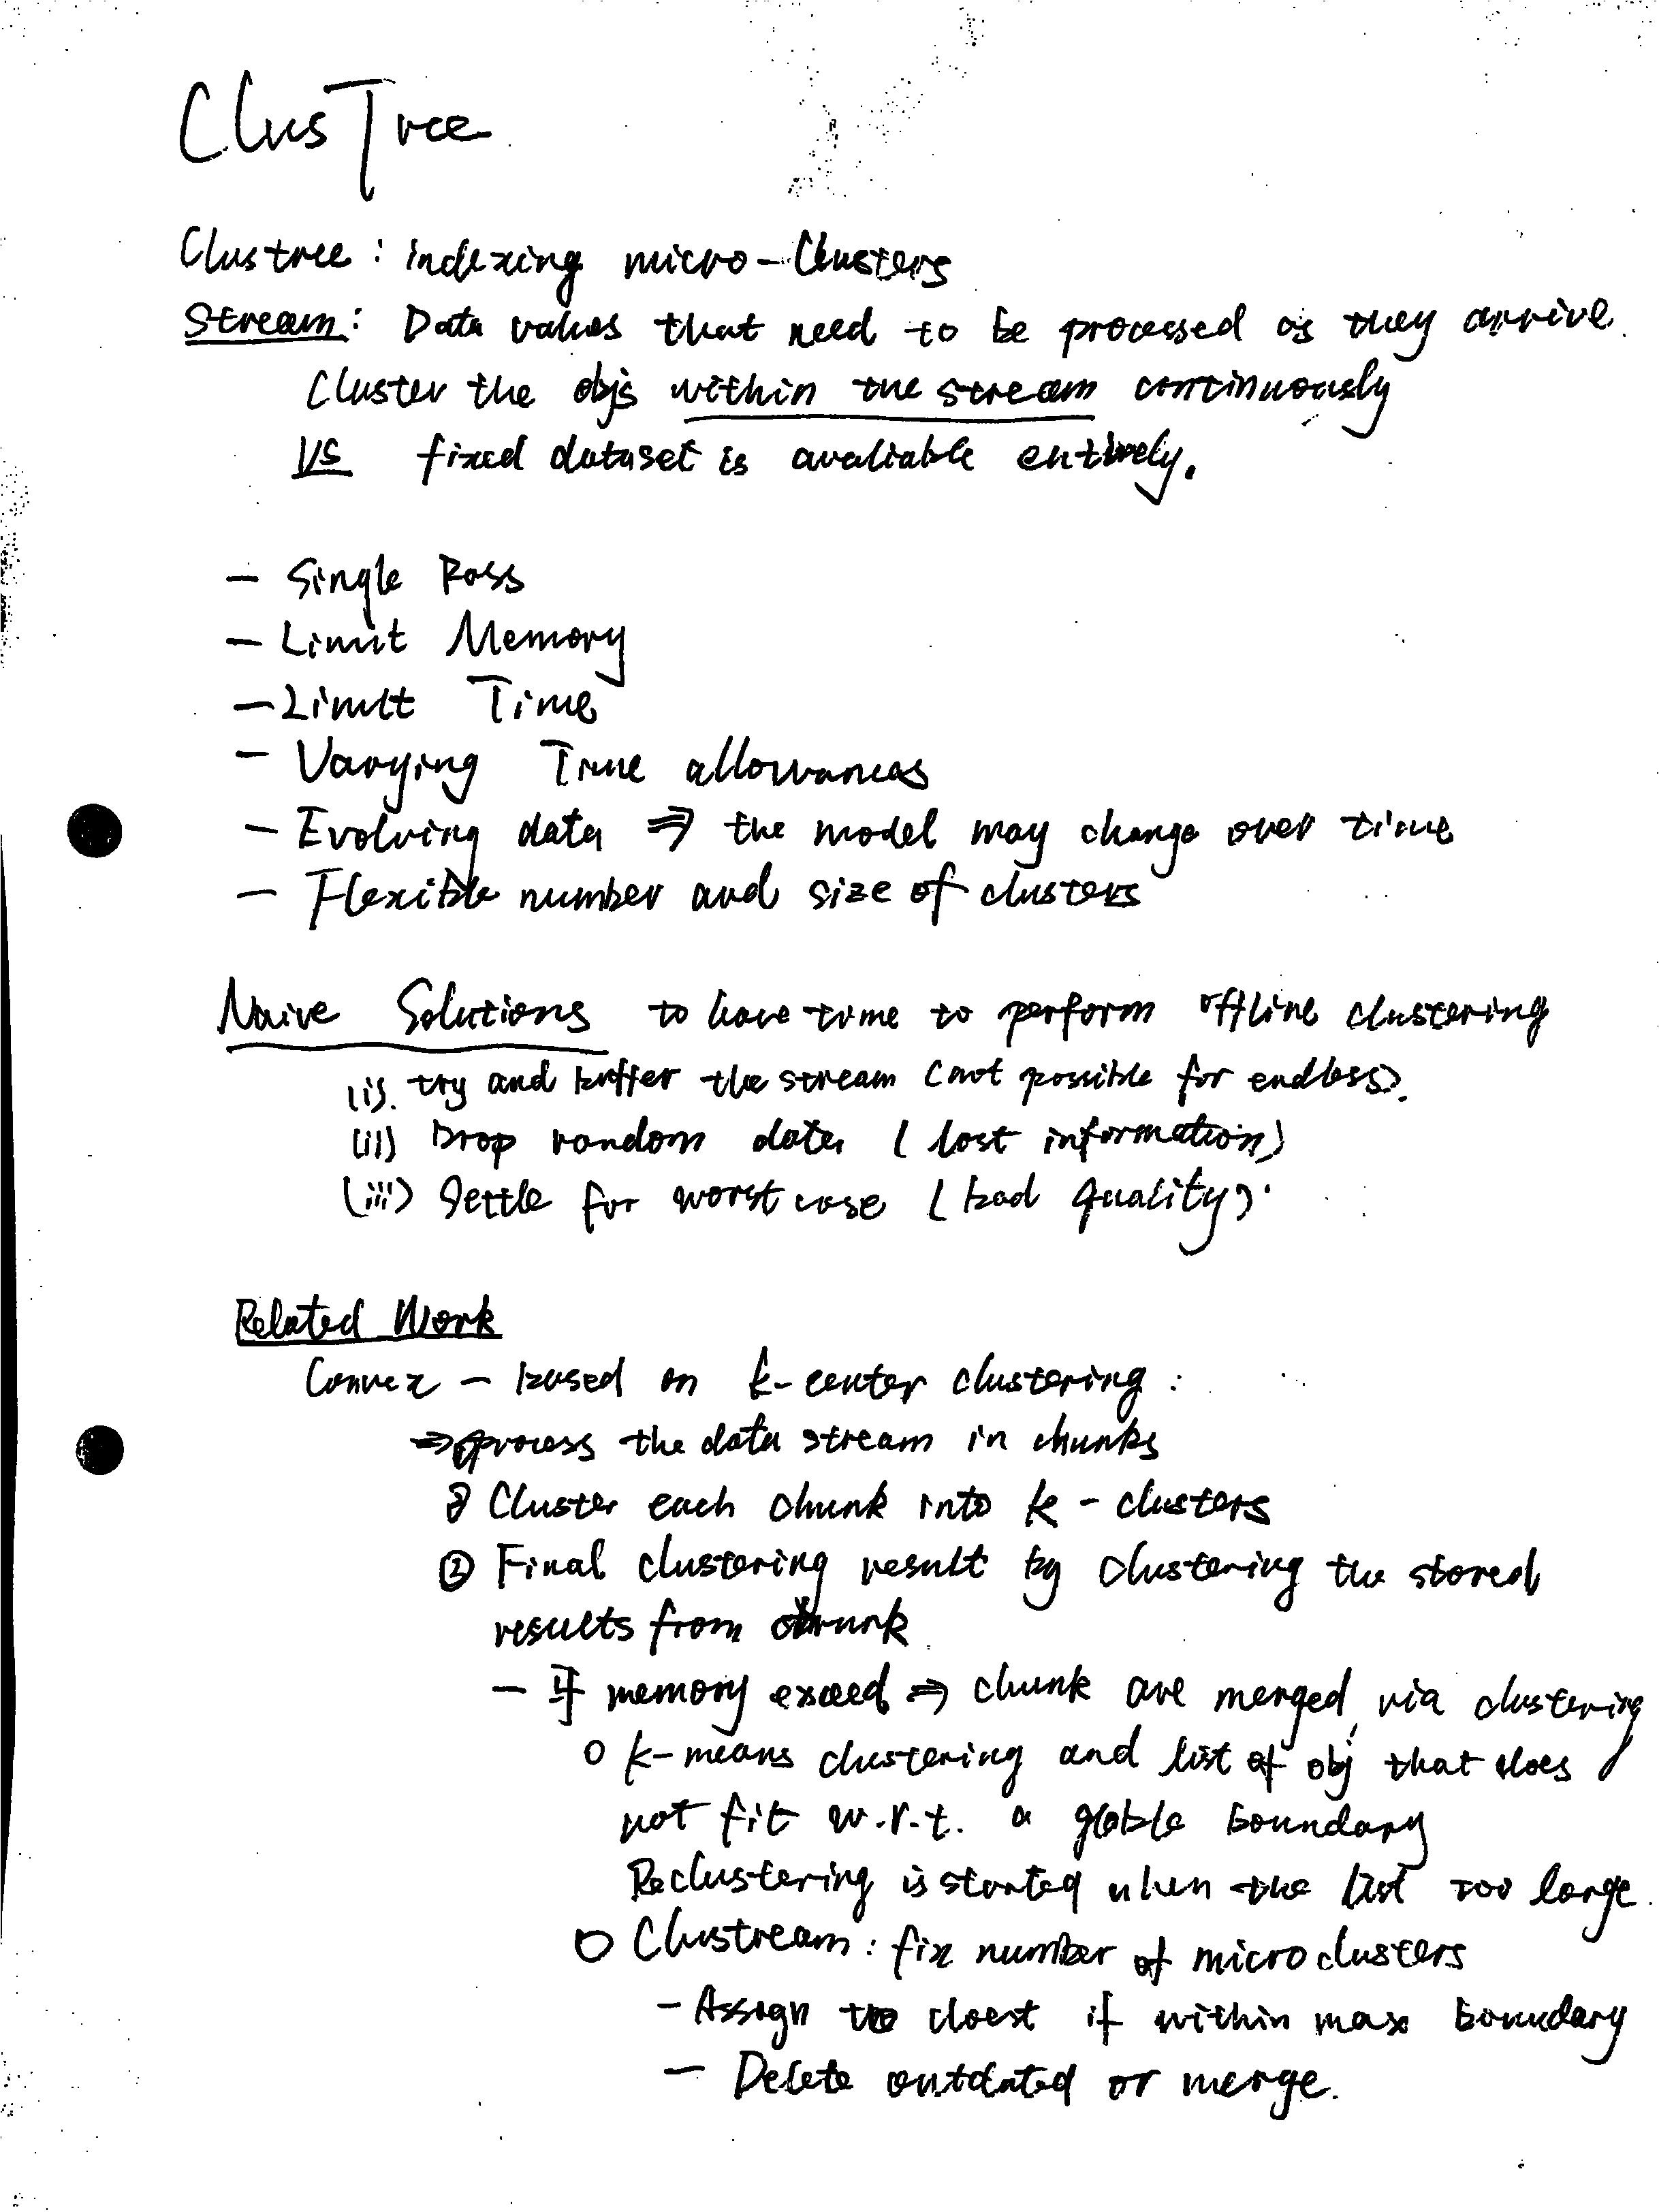 ClusTree
Clustree : indexing micro-Clusters
Stream: Data values that need to be processed as they arrive.
Cluster the objs within the stream continuously
VS fixed dataset is avaliable entirely.
- Single Pass
- Limit Memory
- Limit Time
- Varying Time allowances
- Evolving data ⇒ the model may change over time
- Flexible number and size of clusters
Naive Solutions to have time to perform offline clustering
(i). try and buffer the stream (not possible for endless).
(ii) Drop random data (lost information)
(iii) Settle for worst case (bad quality).
Related Work
Convex - based on k-center clustering :
⇒ process the data stream in chunks
① Cluster each chunk into k - clusters
② Final clustering result by clustering the stored
results from chunk
- if memory exceed ⇒ chunk are merged via clustering
o k-means clustering and list of obj that does
not fit w.r.t. a globle boundary
Reclustering is started when the list too large.
o Clustream : fix number of micro clusters
- Assign to cloest if within max boundary
- Delete outdated or merge.